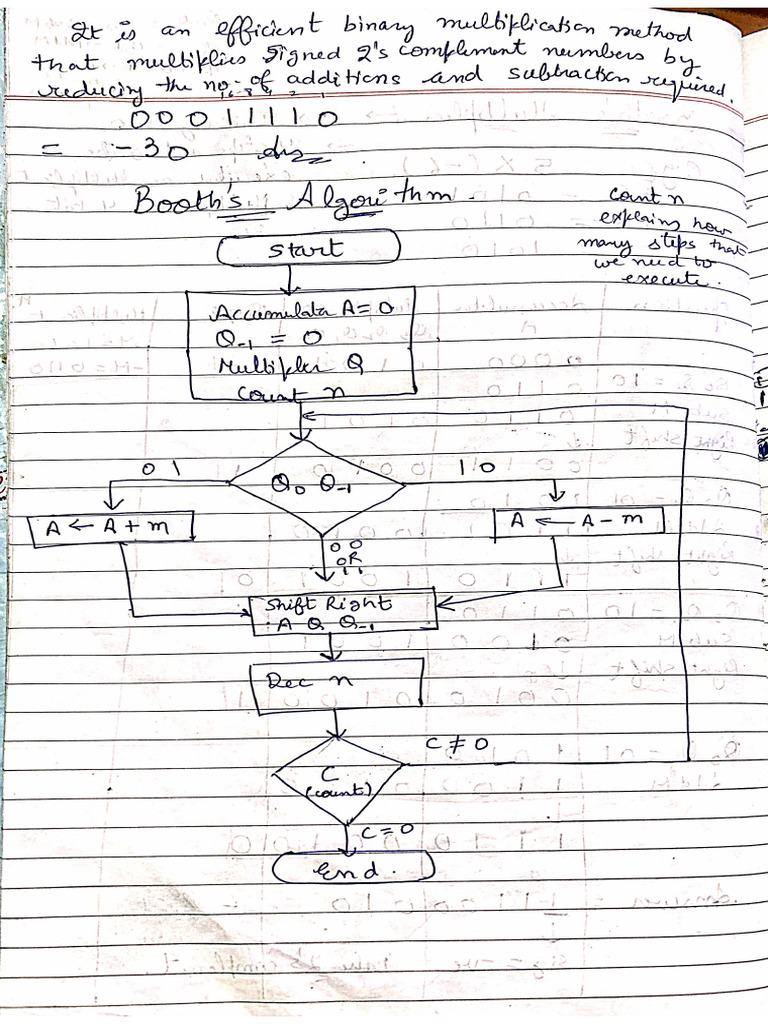 It is an efficient binary multiplication method
that multiplies signed 2's complement numbers by
reducing the no. of additions and subtraction required.
16 8 4 2 1
0 0 0 1 1 1 1 0
= -30 Ans
Booth's Algorithm.
count n
explains how
many steps that
we need to
execute.
Start
Accumulator A = 0
Q-1 = 0
Multiplier Q
Count n
0 1
Q0 Q-1
1 0
A ← A + m
A ← A - m
0 0
OR
1 1
Shift Right
A Q Q-1
Dec n
C ≠ 0
C
(count)
C = 0
End.